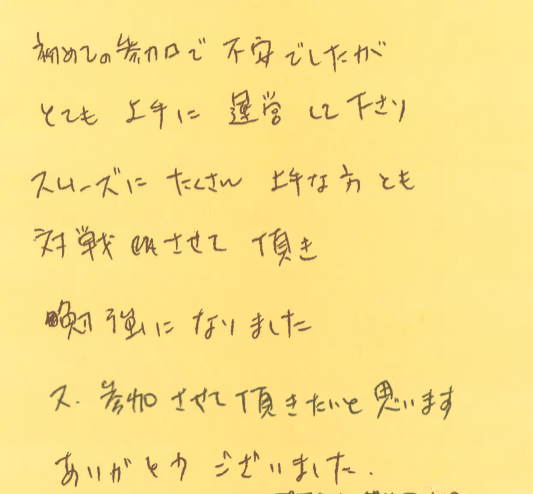 初めての参加で不安でしたが
とても上手に運営して下さり
スムーズにたくさん上手な方とも
対戦させて頂き
勉強になりました
又、参加させて頂きたいと思います
ありがとうございました.